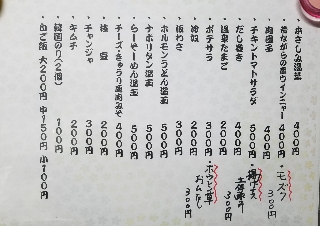 ・おさしみ湯葉 400円
・昔ながらの赤ウインナー 400円
・肉豆腐 400円
・チキントマトサラダ 500円
・だし巻き 400円
・温泉たまご 200円
・ポテサラ 300円
・冷奴 200円
・板わさ 300円
・ホルモンうどん温玉 500円
・ナポリタン温玉 500円
・らーそーめん温玉 500円
・チーズ・きゅうり肉みそ 400円
・枝豆 200円
・チャンジャ 300円
・キムチ 200円
・韓国のり(2個) 100円
・白ご飯 大200円 中150円 小100円
・モズク 300円
・揚げナス 300円
・ホウレン草おひたし 300円